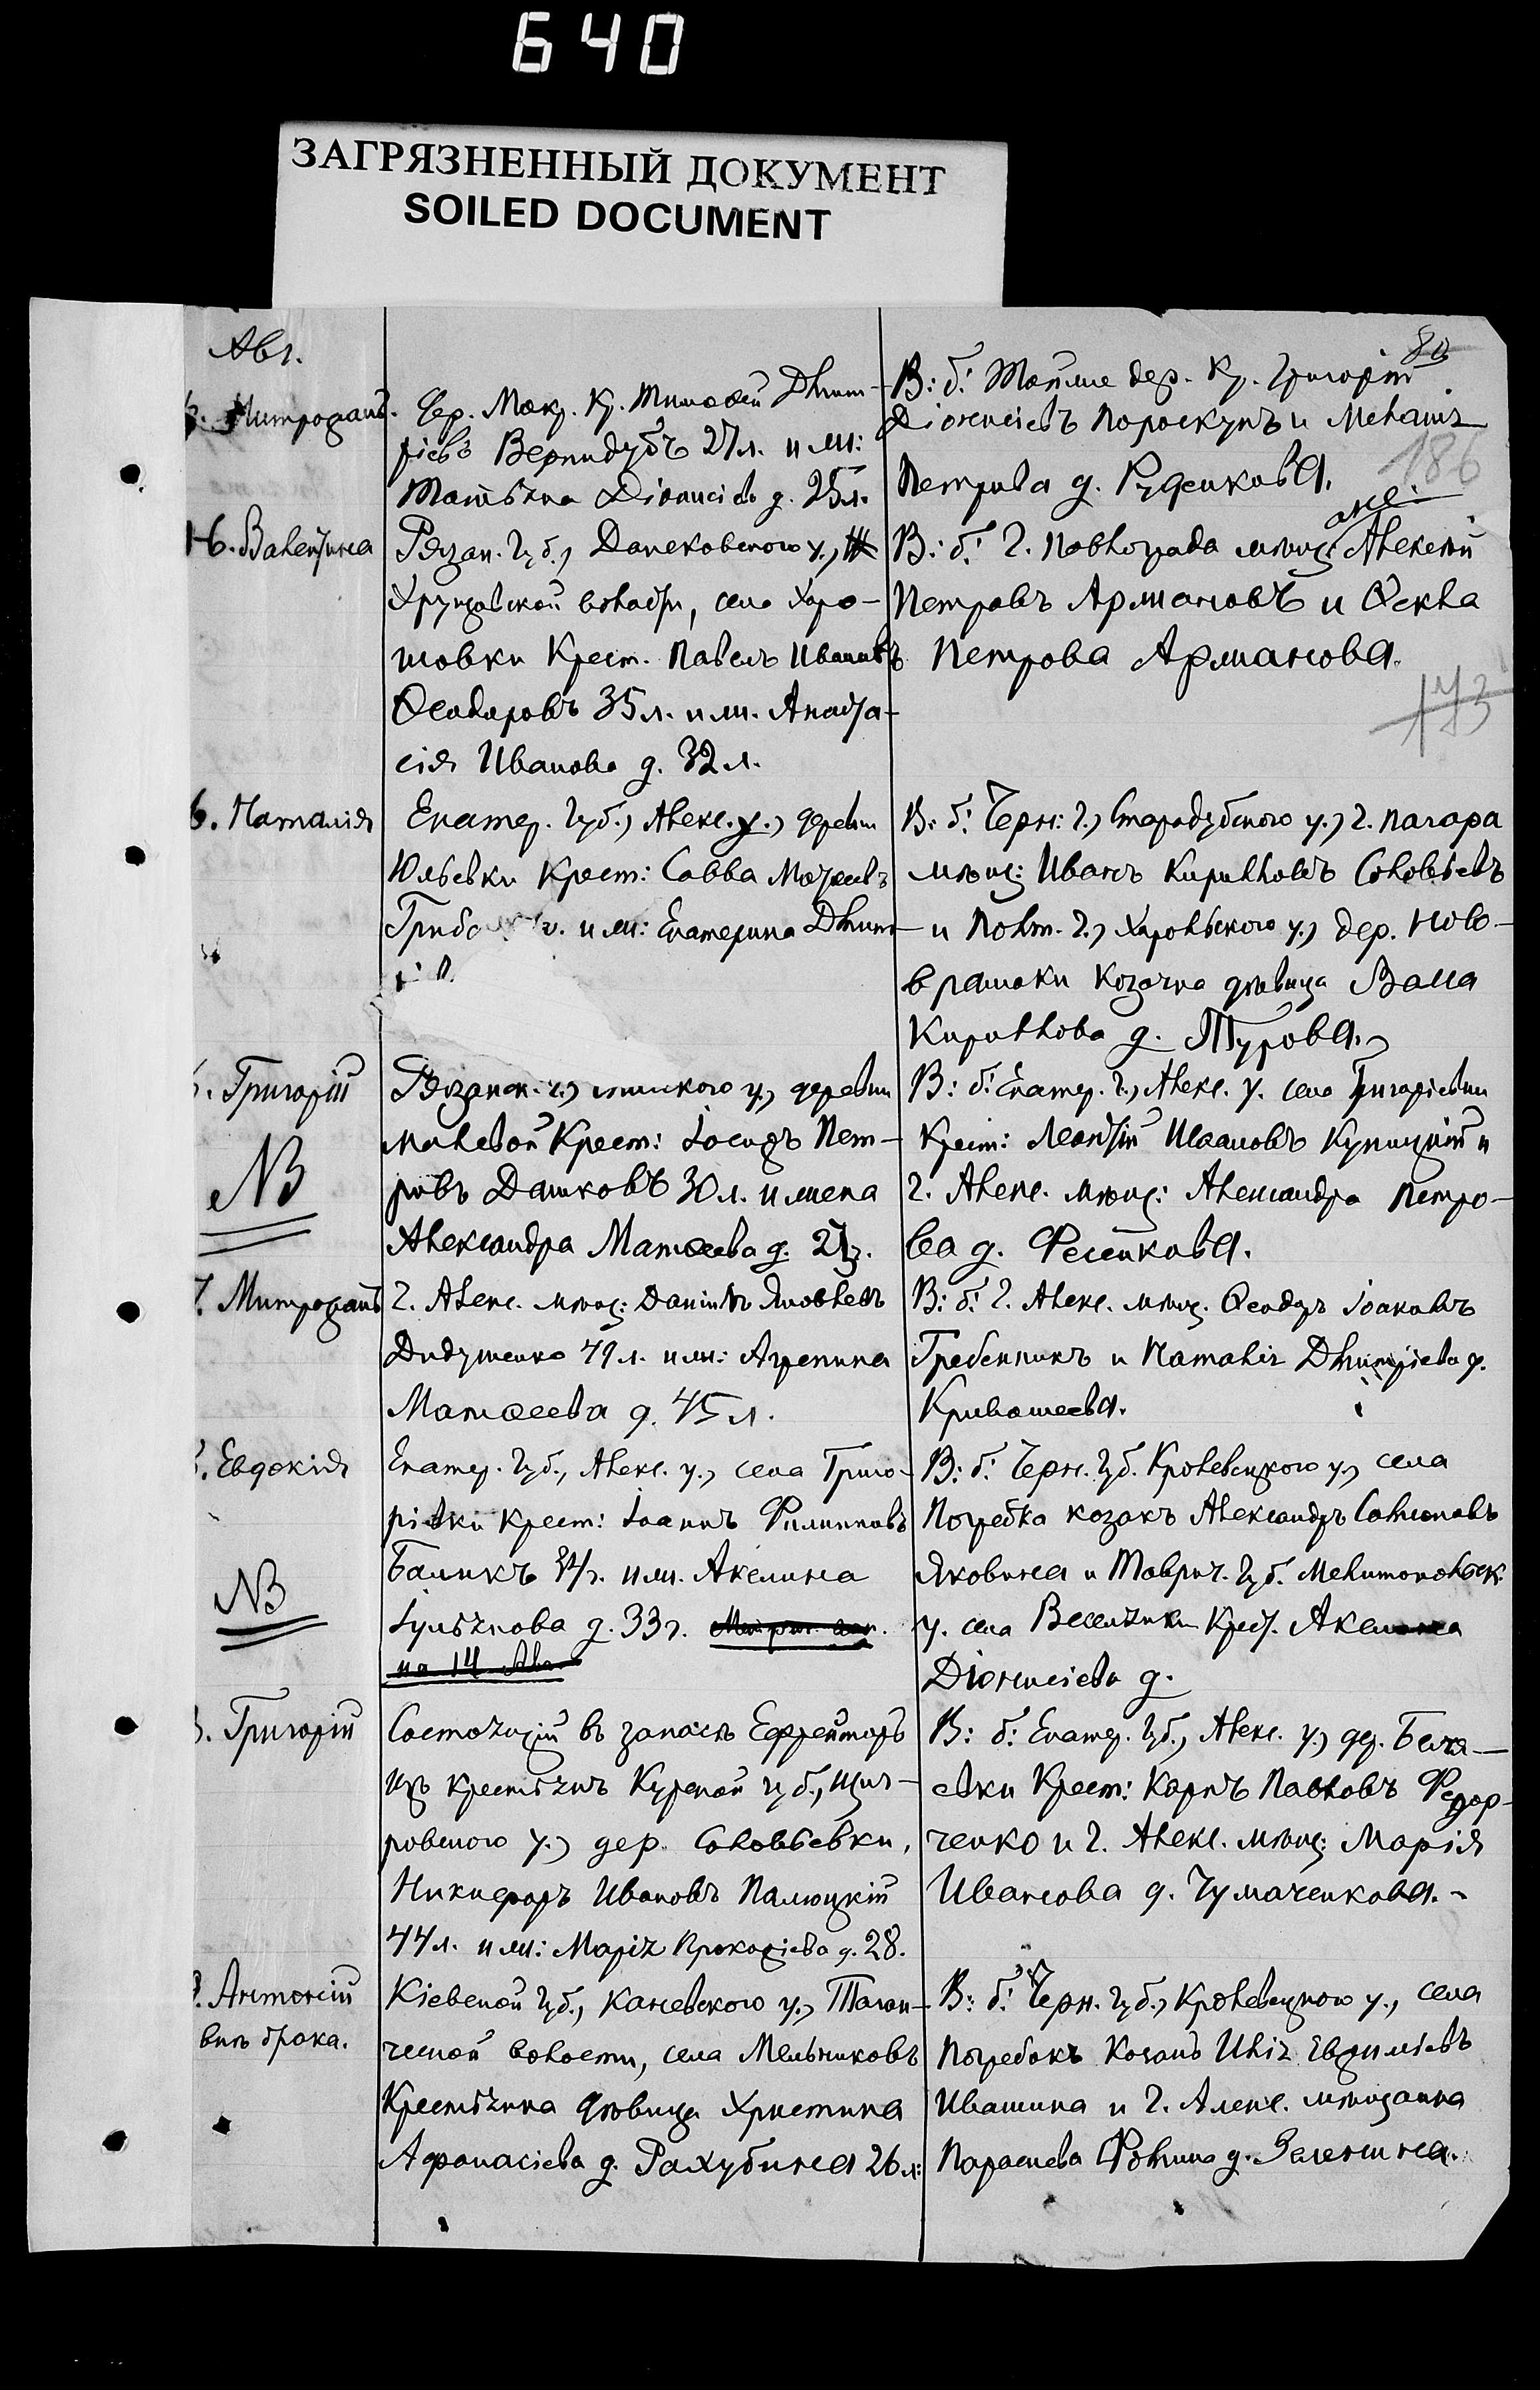 640
ЗАГРЯЗНЕННЫЙ ДОКУМЕНТ
SOILED DOCUMENT
Авг.
80
186
173
Митрофанъ.
Дер. Мокр. Кр. Тимоѳей Дмит-
ріевъ Вернидубъ 27 л. и жи:
Татьяна Діонисіев д. 25 л.
В: б: Тойже дер. Кр. Григорій
Діонисіевъ Пороскунъ и Меланія
Петрова д. Руденкова.
16. Валентина
Рязан. Губ., Данковского у.,
Хрущовской волости, села Харо-
шовки Крест. Павелъ Ивановъ
Ѳеодоровъ 35 л. и ж. Анаста-
сія Иванова д. 32 л.
В: б: г. Павлограда мѣщ: Алексѣй
Петровъ Армановъ и Ѳекла
Петрова Арманова.
6. Наталія
Екатер. Губ., Алекс. у., деревни
Юльевки Крест: Савва Моѵсеевъ
Грибо и ж: Екатерина Дмит-
В: б: Черн: г., Стародубского у., г. Погара
мѣщ: Иванъ Кирилловъ Соловьевъ
и Полт. г., Хорольского у., дер. Ново-
врамаки Козачка дѣвица Васса
Кириллова д. Турова.
Григорій
NB
Рязанск. г., у., деревни
Крест: Іосифъ Пет-
ровъ Дашковъ 30 л. и жена
Александра Матѳеева д. 27 г.
В: б: Екатер. г., Алекс. у. села Григорьевки
Крест: Леонтій Ивановъ Купицкій и
г. Алекс. мѣщ: Александра Петро-
ва д. Фесенкова.
7. Митрофанъ
г. Алекс. мѣщ: Даніилъ Яковлевъ
Дидушенко 49 л. и жи: Агрепина
Матѳеева д. 45 л.
В: б: г. Алекс. мѣщ. Ѳеодоръ Іоаковъ
Гребенникъ и Наталія Дмитріева д.
Кривошеева.
Евдокія
NB
Екатер. Губ., Алекс. у., села Григо-
рівки Крест: Іоаннъ Филипповъ
Балыкъ 34 г. и жи. Акелина
Іульянова д. 33 г.
на 14 Авг
В: б: Черн. Губ. Кролевецкого у., села
Погребка козакъ Александръ Самсоновъ
Яковина и Таврич. Губ. Мелитопольск.
у. села Веселянки Крест. Акелина
Діонисіева д.
Григорій
Состоящій въ запасѣ Ефрейторъ
изъ крестьянъ Курской губ., Щиг-
ровского у., дер. Соловьевки,
Никифоръ Ивановъ Палюцкій
44 л. и жи: Марія Прокофіева д. 28.
В: б: Екатер. Губ., Алекс. у., дер. Беля-
евки Крест: Карпъ Павловъ Федор-
ченко и г. Алекс. мѣщ: Марія
Иванова д. Чумаченкова.
Антоній
внѣ брака.
Кіевской Губ., Каневского у., Таган-
ческой волости, села Мельниковъ
Крестьянка дѣвица Христина
Афонасіева д. Рахубина 26 л:
В: б: Черн. Губ., Кролевецкого у., села
Погребокъ Козакъ Илія Евфиміевъ
Ивашина и г. Алекс. мѣщанка
Парасева Фомина д. Зеленина.